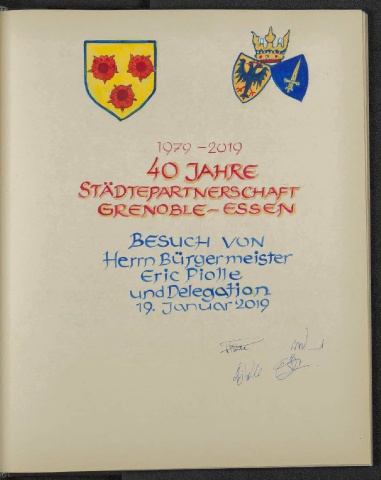 1979-2019
40 JAHRE
STÄDTEPARTNERSCHAFT
GRENOBLE-ESSEN
BESUCH VON
Herrn Bürgermeister
Eric Piolle
und Delegation
19. Januar 2019